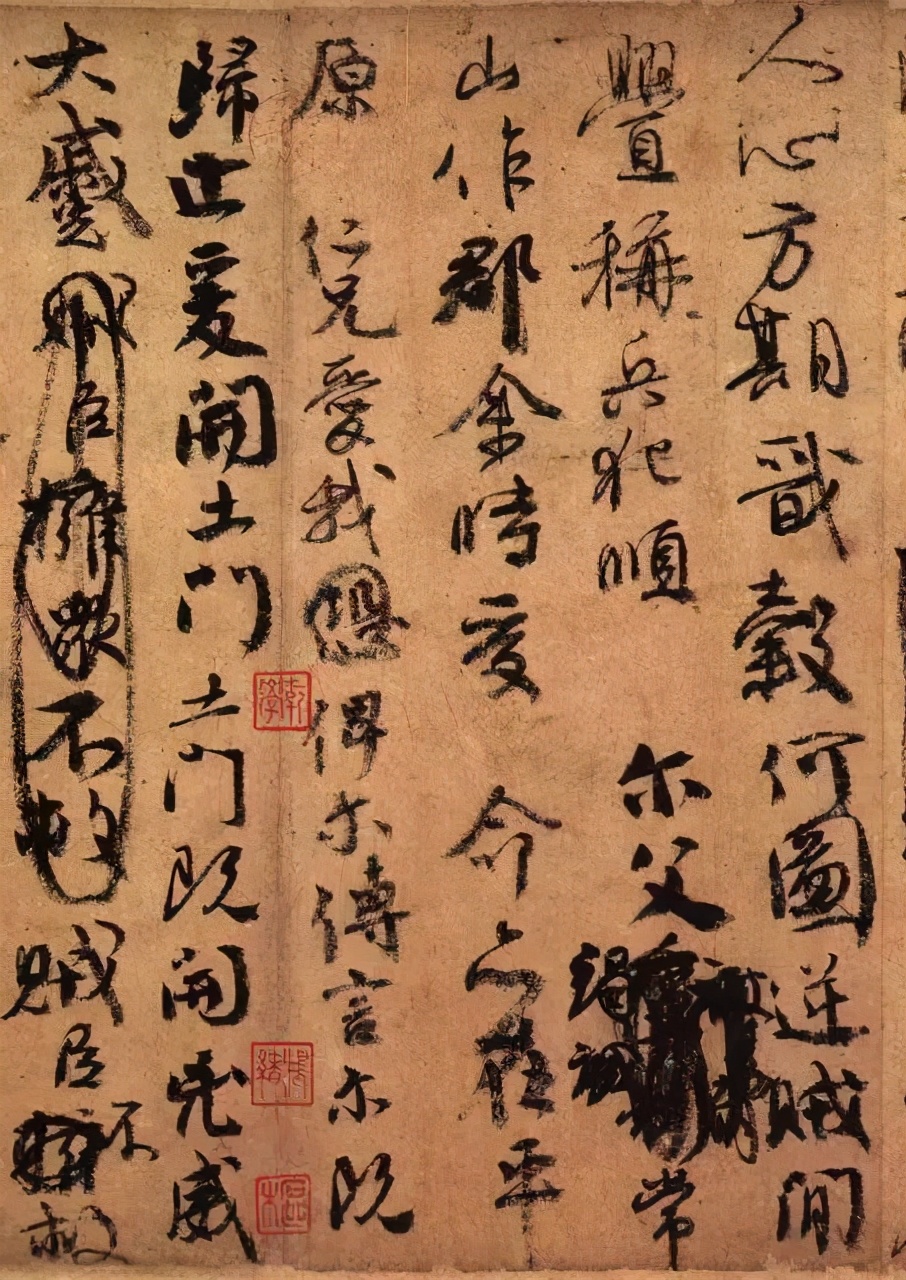 人心方期戩穀何圖逆賊閒
釁稱兵犯順 尔父竭誠常
山作郡余時受 命亦在平
原 仁兄愛我恐俾尔傳言尔既
歸止爰開土門土門既開凶威
大蹙賊臣擁衆不救賊臣不救